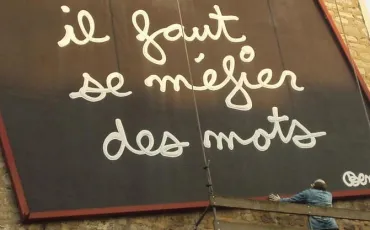 il faut
se méfier
des mots
Ben